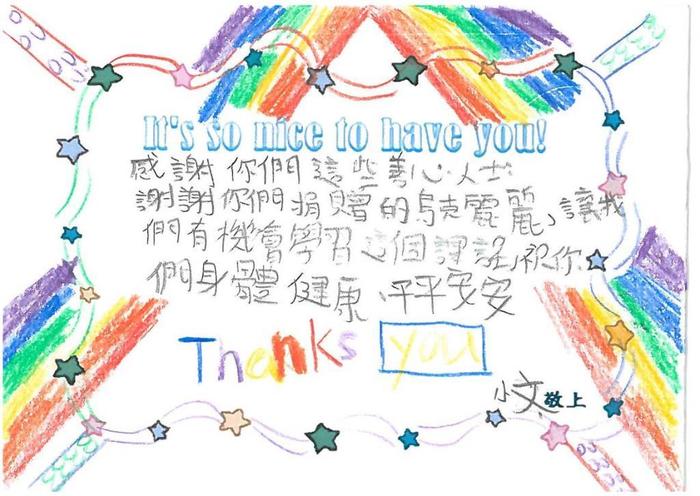 It's so nice to have you!
感謝你們這些善心人士
謝謝你們捐贈的烏克麗麗,讓我
們有機會學習這個課話,祝你
們身體健康、平平安安
Thanks you
小文敬上